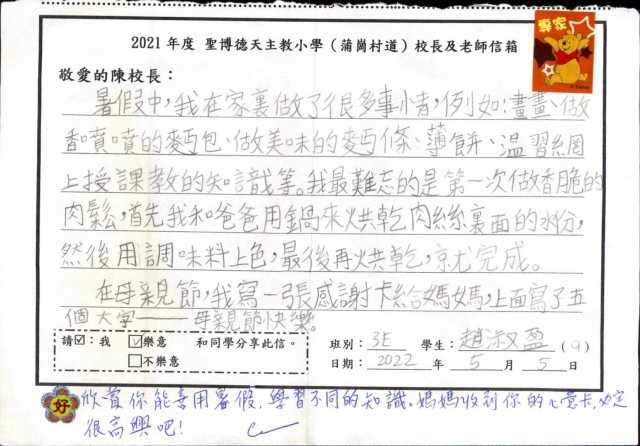 專家
2021 年度 聖博德天主教小學（蒲崗村道）校長及老師信箱
敬愛的陳校長：
暑假中，我在家裏做了很多事情，例如：畫畫、做
香噴噴的麪包、做美味的麪條、薄餅、温習網
上授課教的知識等。我最難忘的是第一次做香脆的
肉鬆，首先我和爸爸用鍋來烘乾肉絲裏面的水分，
然後用調味料上色，最後再烘乾，就完成。
在母親節，我寫一張感謝卡給媽媽，上面寫了五
個大字——母親節快樂。
請☑：我 ☑樂意 和同學分享此信。
□不樂意
班別：3E 學生：趙淑盈 (9)
日期：2022 年 5 月 5 日
好 欣賞你能善用暑假，學習不同的知識。媽媽收到你的心意卡，必定
很高興吧！